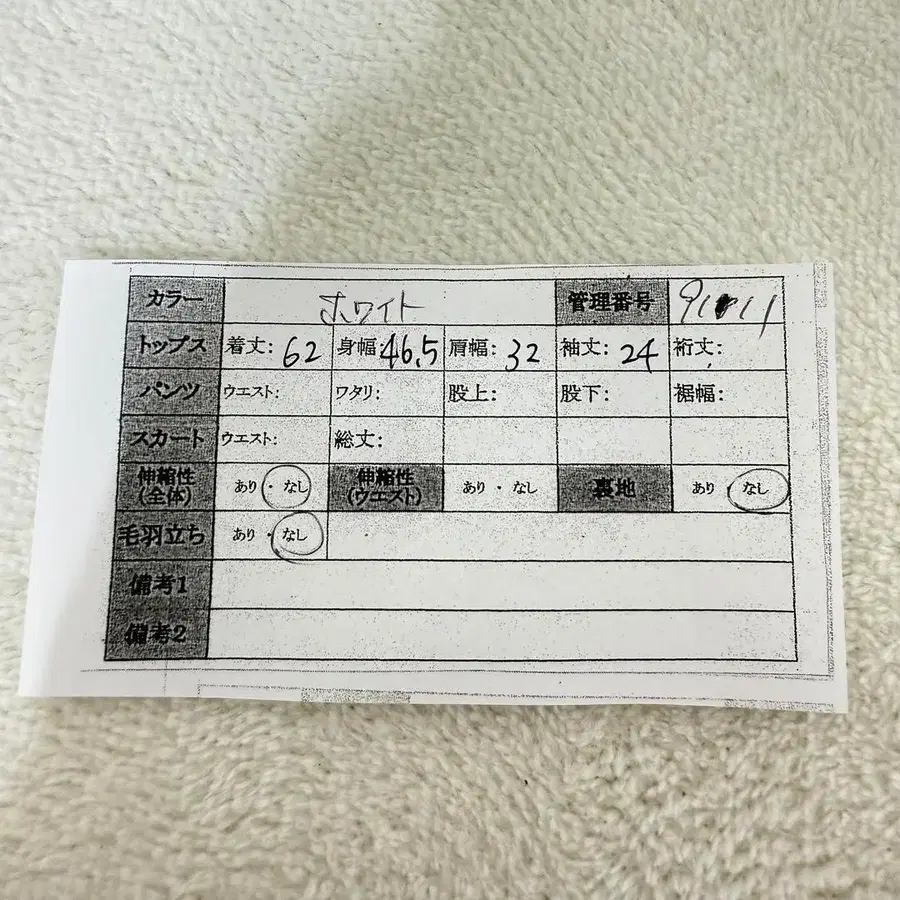 カラー ホワイト 管理番号
トップス 着丈: 62 身幅: 46.5 肩幅: 32 袖丈: 24 裄丈:
パンツ ウエスト: ワタリ: 股上: 股下: 裾幅:
スカート ウエスト: 総丈:
伸縮性(全体) あり・なし 伸縮性(ウエスト) あり・なし 裏地 あり・なし
毛羽立ち あり・なし
備考1
備考2